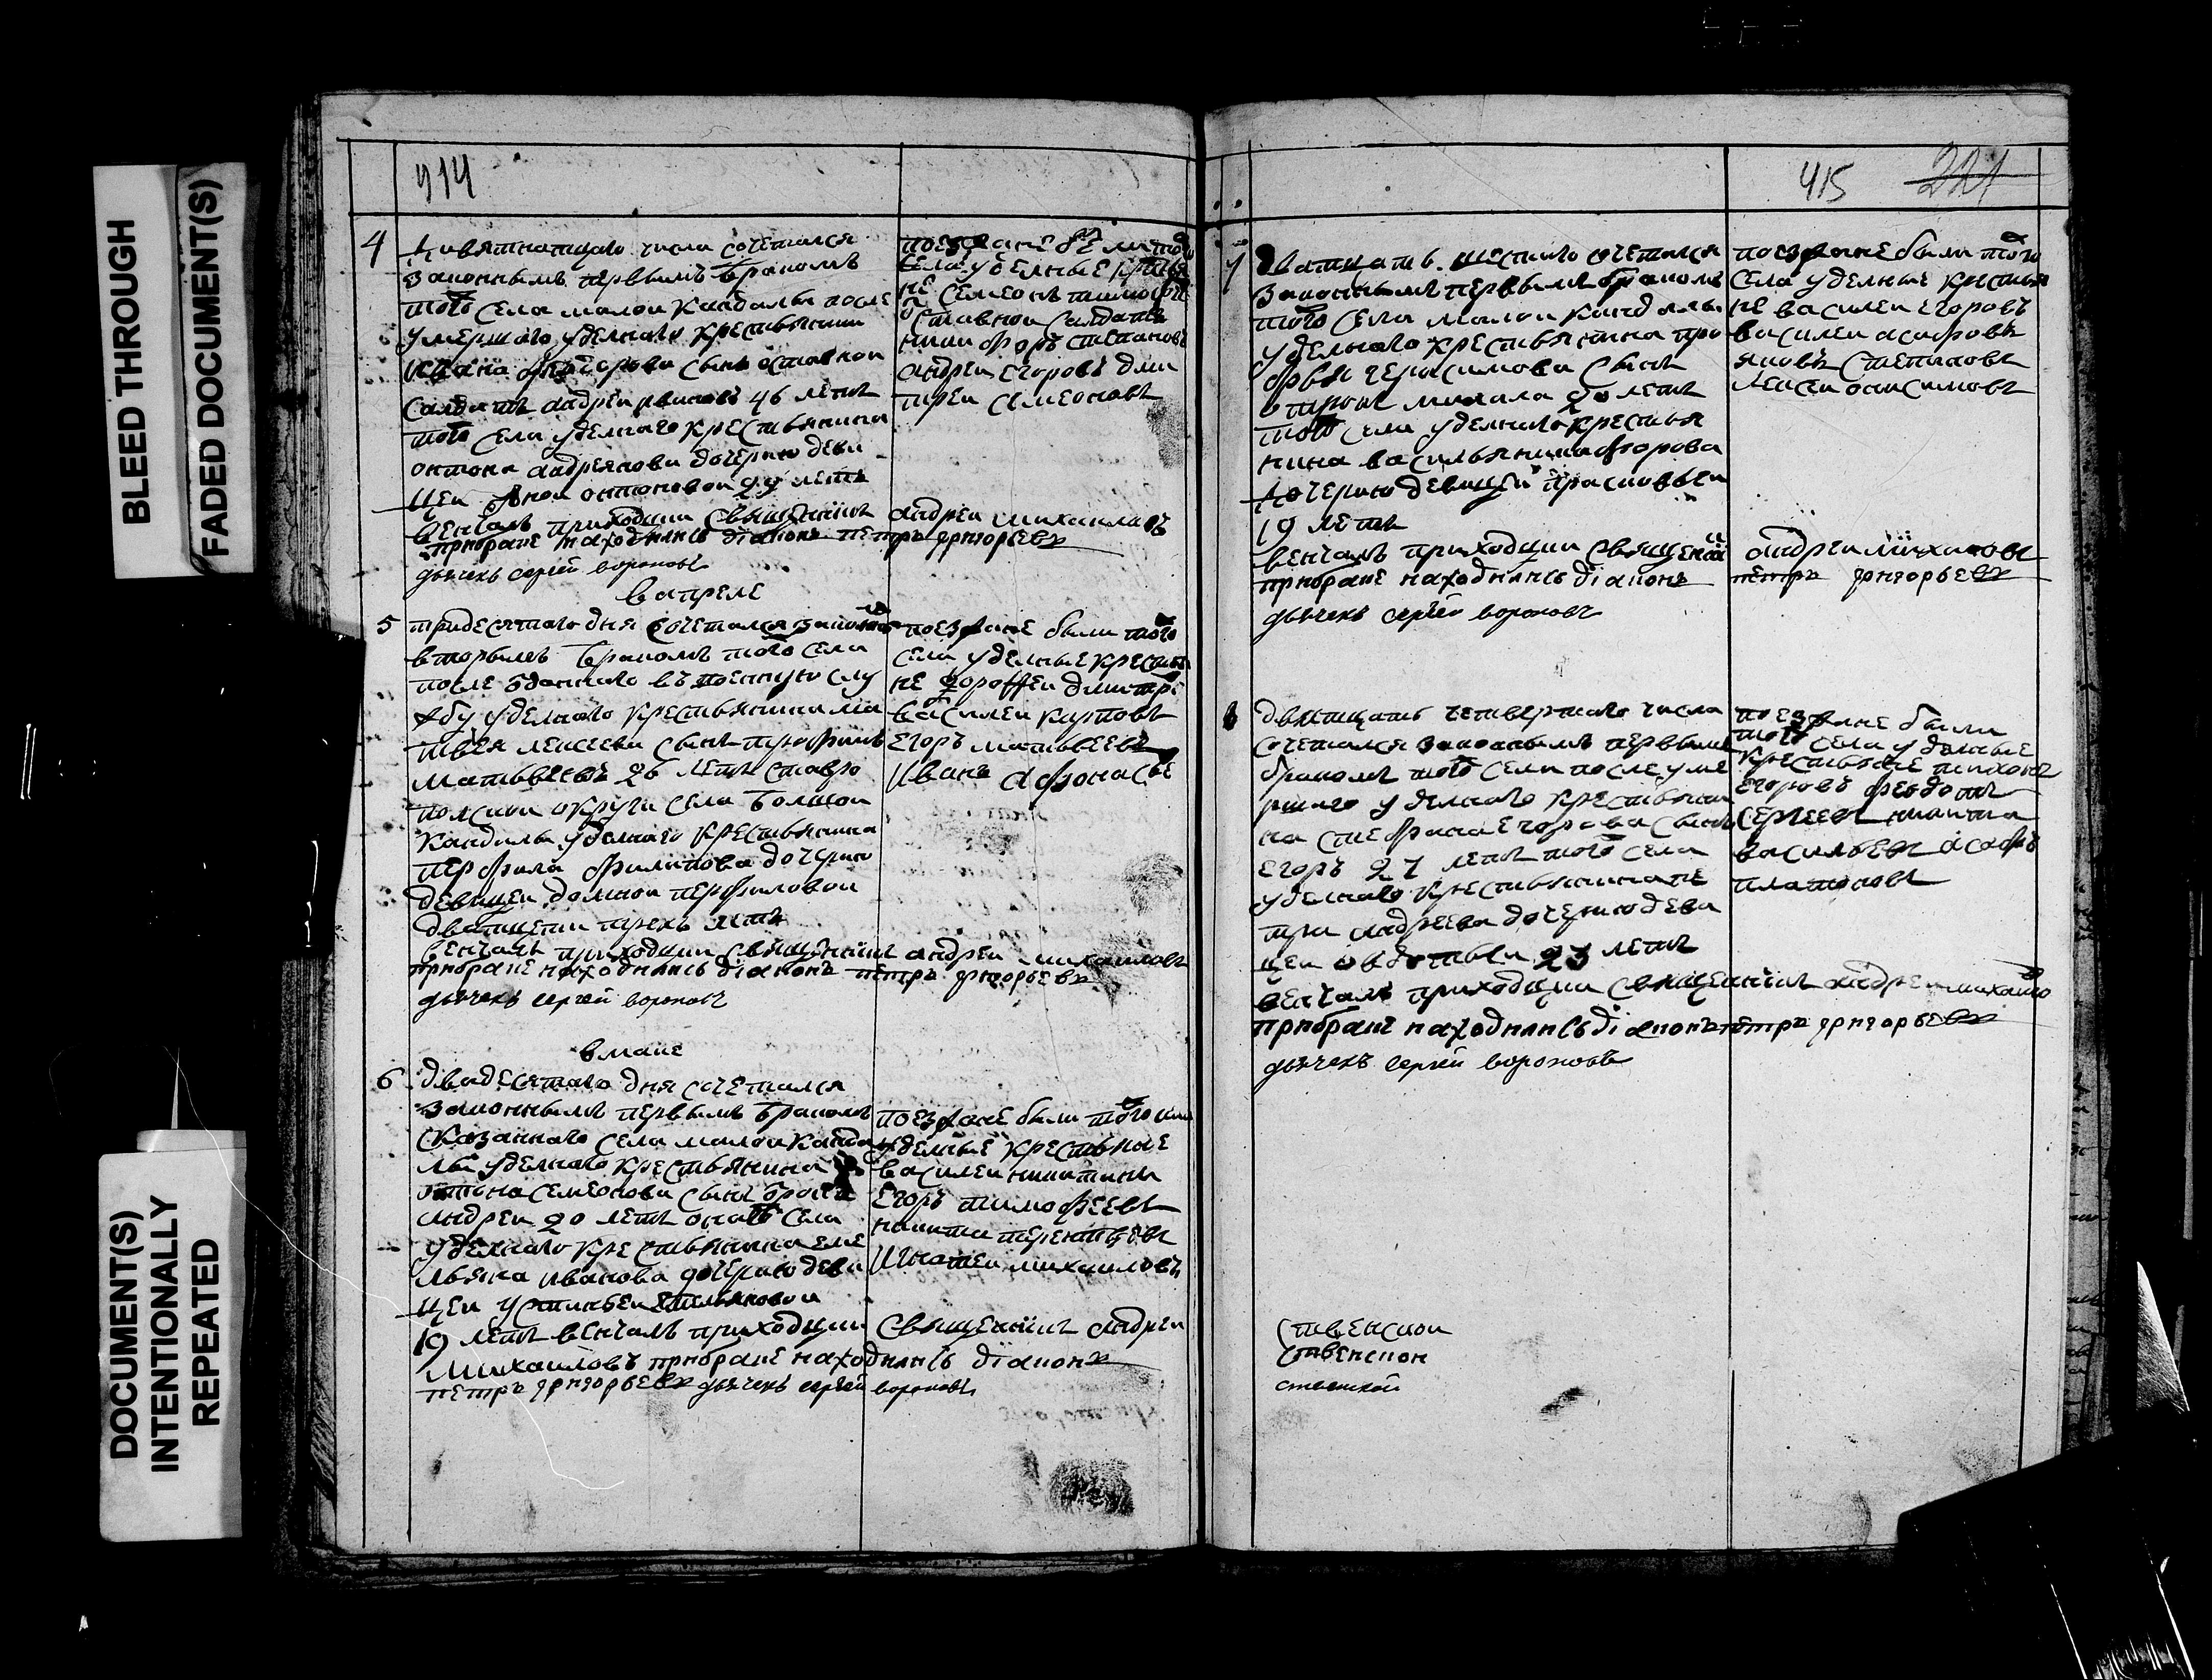 BLEED THROUGH
FADED DOCUMENT(S)
DOCUMENT(S)
INTENTIONALLY
REPEATED
914
4
девятнатцаго числа сочетался
законнымъ первымъ бракомъ
того села малои кандалы после
умершаго уделнаго крестьянина
сынъ оставнои
салдатъ андреи 46 летъ
того села уделнаго крестьянина
онтона андреянова дочерию деви
цеи онтоновои 29 летъ
венчалъ приходции священникъ андреи михаиловъ
прибраке находились діаконъ петръ григорьевъ
дьячекъ сергей вороновъ
поезжане были того
села уделные крестья
не семеонъ тимофее
оставнои салдатъ
никифоръ степановъ
андреи егоровъ дми
треи семеоновъ
в апреле
5
тридесятаго дня сочетался законнымъ
вторымъ бракомъ того села
после отданнаго въ военную слу
жбу уделнаго крестьянина ма
твея лексеева сынъ трофимъ
матвеевъ 26 летъ ставро
полскои округи села болшои
кандалы уделнаго крестьянина
перфила филипова дочерию
девицеи домнои перфиловои
дватцети трехъ летъ
венчалъ приходции священникъ андреи михаиловъ
прибраке находились діаконъ петръ григорьевъ
дьячекъ сергей вороновъ
поезжане были того
села уделные крестья
не дорофеи дмитре
василеи карповъ
егоръ матвеевъ
иванъ афонасье
в маие
6
двадесятаго дня сочетался
законнымъ первымъ бракомъ
сказаннаго села малои канда
лы уделнаго крестьянина
семеонова сынъ
андреи 20 летъ онаго села
уделнаго крестьянина еме
льяна иванова дочерию деви
цеи устиньеи емельяновои
19 летъ венчалъ приходции священникъ андреи
михаиловъ прибраке находились діаконъ
петръ григорьевъ дьячекъ сергей вороновъ
поезжане были того села
уделные крестьяне
василеи никитинъ
егоръ тимофеевъ
никита терентьевъ
игнатеи михаиловъ
415 221
7
дватцать шестаго сочетался
законнымъ первымъ бракомъ
того села малои кандалы
уделнаго крестьянина про
кофья герасимова сынъ
отрокъ михаила 20 летъ
того села уделнаго крестья
нина василья никифорова
дочерию девицеи прасковьеи
19 летъ
венчалъ приходции священникъ андреи михаиловъ
прибраке находились діаконъ петръ григорьевъ
дьячекъ сергей вороновъ
поезжане были того
села уделные крестья
не василеи егоровъ
василеи асафовъ
яковъ степановъ
лексеи онисимовъ
8
двятцать четвертаго числа
сочетался законнымъ первымъ
бракомъ того села после уме
ршаго уделнаго крестьяни
на стефана егорова сынъ
егоръ 27 летъ того села
уделнаго крестьянина пе
тра андреева дочерию деви
цеи овдотьеи 23 летъ
венчалъ приходции священникъ андреи михаило
прибраке находились діаконъ петръ григорьевъ
дьячекъ сергей вороновъ
поезжане были
того села уделные
крестьяне тихонъ
егоровъ феодотъ
сергеевъ никита
васильевъ асафъ
платоновъ
ственнои
ственнои